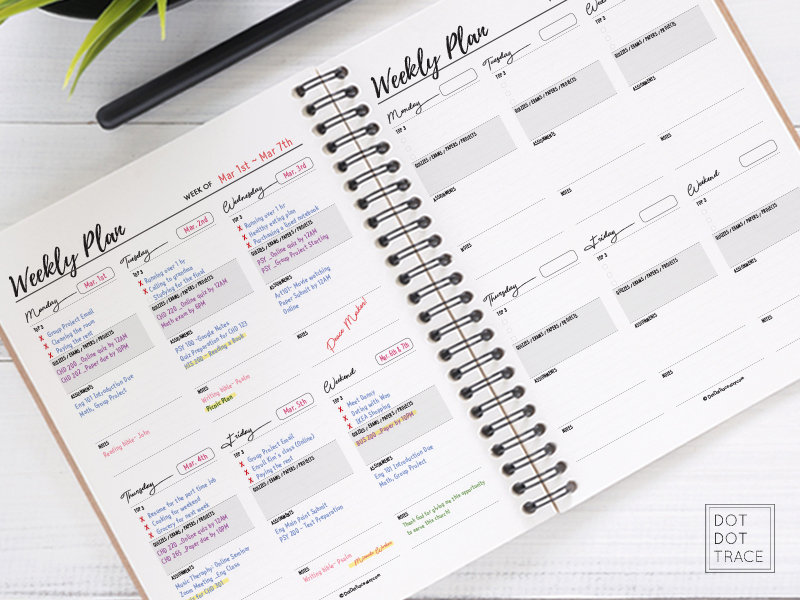 Weekly Plan
WEEK OF Mar 1st ~ Mar 7th
Monday Mar. 1st
TOP 3
X Group Project Email
X Cleaning the room
X Paying the rent
QUIZZES / EXAMS / PAPERS / PROJECTS
CHD 200 _Online quiz by 12AM
CHD 202 _Paper due by 10PM
ASSIGNMENTS
Eng 101 Introduction Due
Math, Group Project
NOTES
Reading Bible- John
Tuesday Mar. 2nd
TOP 3
X Running over 1 hr
X Calling to grandma
Studying for the food
QUIZZES / EXAMS / PAPERS / PROJECTS
CHD 220 _Online quiz by 12AM
Math exam by 6PM
ASSIGNMENTS
PSY 100 -Google Note's
Quiz Preparation for CHD 123
BUS 200 - Reading a Book
NOTES
Writing Bible- Psalm
Picnic Plan
Wednesday Mar. 3rd
TOP 3
X Running over 1 hr
X Healthy eating plan
X Purchasing a lined notebook
QUIZZES / EXAMS / PAPERS / PROJECTS
PSY _Online quiz by 12AM
PSY _Group Project Starting
ASSIGNMENTS
Art101- Movie watching
Paper Submit by 12AM
Online
NOTES
Thursday Mar. 4th
TOP 3
X Resume for the part time job
X Cooking for weekend
X Grocery for next week
QUIZZES / EXAMS / PAPERS / PROJECTS
CHD 220 _Online quiz by 12AM
CHD 265 _Paper due by 10PM
ASSIGNMENTS
Music Theraphy- Online Seminar
Zoom Meeting _Eng Class
for CHD 201
Friday Mar. 5th
TOP 3
X Group Project Email
X Enroll Kim's class (Online)
X Paying the rent
QUIZZES / EXAMS / PAPERS / PROJECTS
ASSIGNMENTS
Eng Main Point Submit
PSY 200 - Test Preparation
NOTES
Writing Bible- Psalm
Weekend Mar. 6th & 7th
TOP 3
X Meet Danny
X Dating with Mom
X IKEA Shopping
QUIZZES / EXAMS / PAPERS / PROJECTS
BUS 200 _Paper by 10PM
ASSIGNMENTS
Eng 101 Introduction Due
Math, Group Project
NOTES
Thank God for giving me this opportunity
to serve this church!
Weekly Plan
Monday
TOP 3
QUIZZES / EXAMS / PAPERS / PROJECTS
ASSIGNMENTS
NOTES
Tuesday
TOP 3
QUIZZES / EXAMS / PAPERS / PROJECTS
ASSIGNMENTS
NOTES
TOP 3
QUIZZES / EXAMS / PAPERS / PROJECTS
ASSIGNMENTS
NOTES
Thursday
TOP 3
QUIZZES / EXAMS / PAPERS / PROJECTS
ASSIGNMENTS
NOTES
Friday
TOP 3
QUIZZES / EXAMS / PAPERS / PROJECTS
ASSIGNMENTS
NOTES
Weekend
TOP 3
QUIZZES / EXAMS / PAPERS / PROJECTS
ASSIGNMENTS
NOTES
DOT
DOT
TRACE